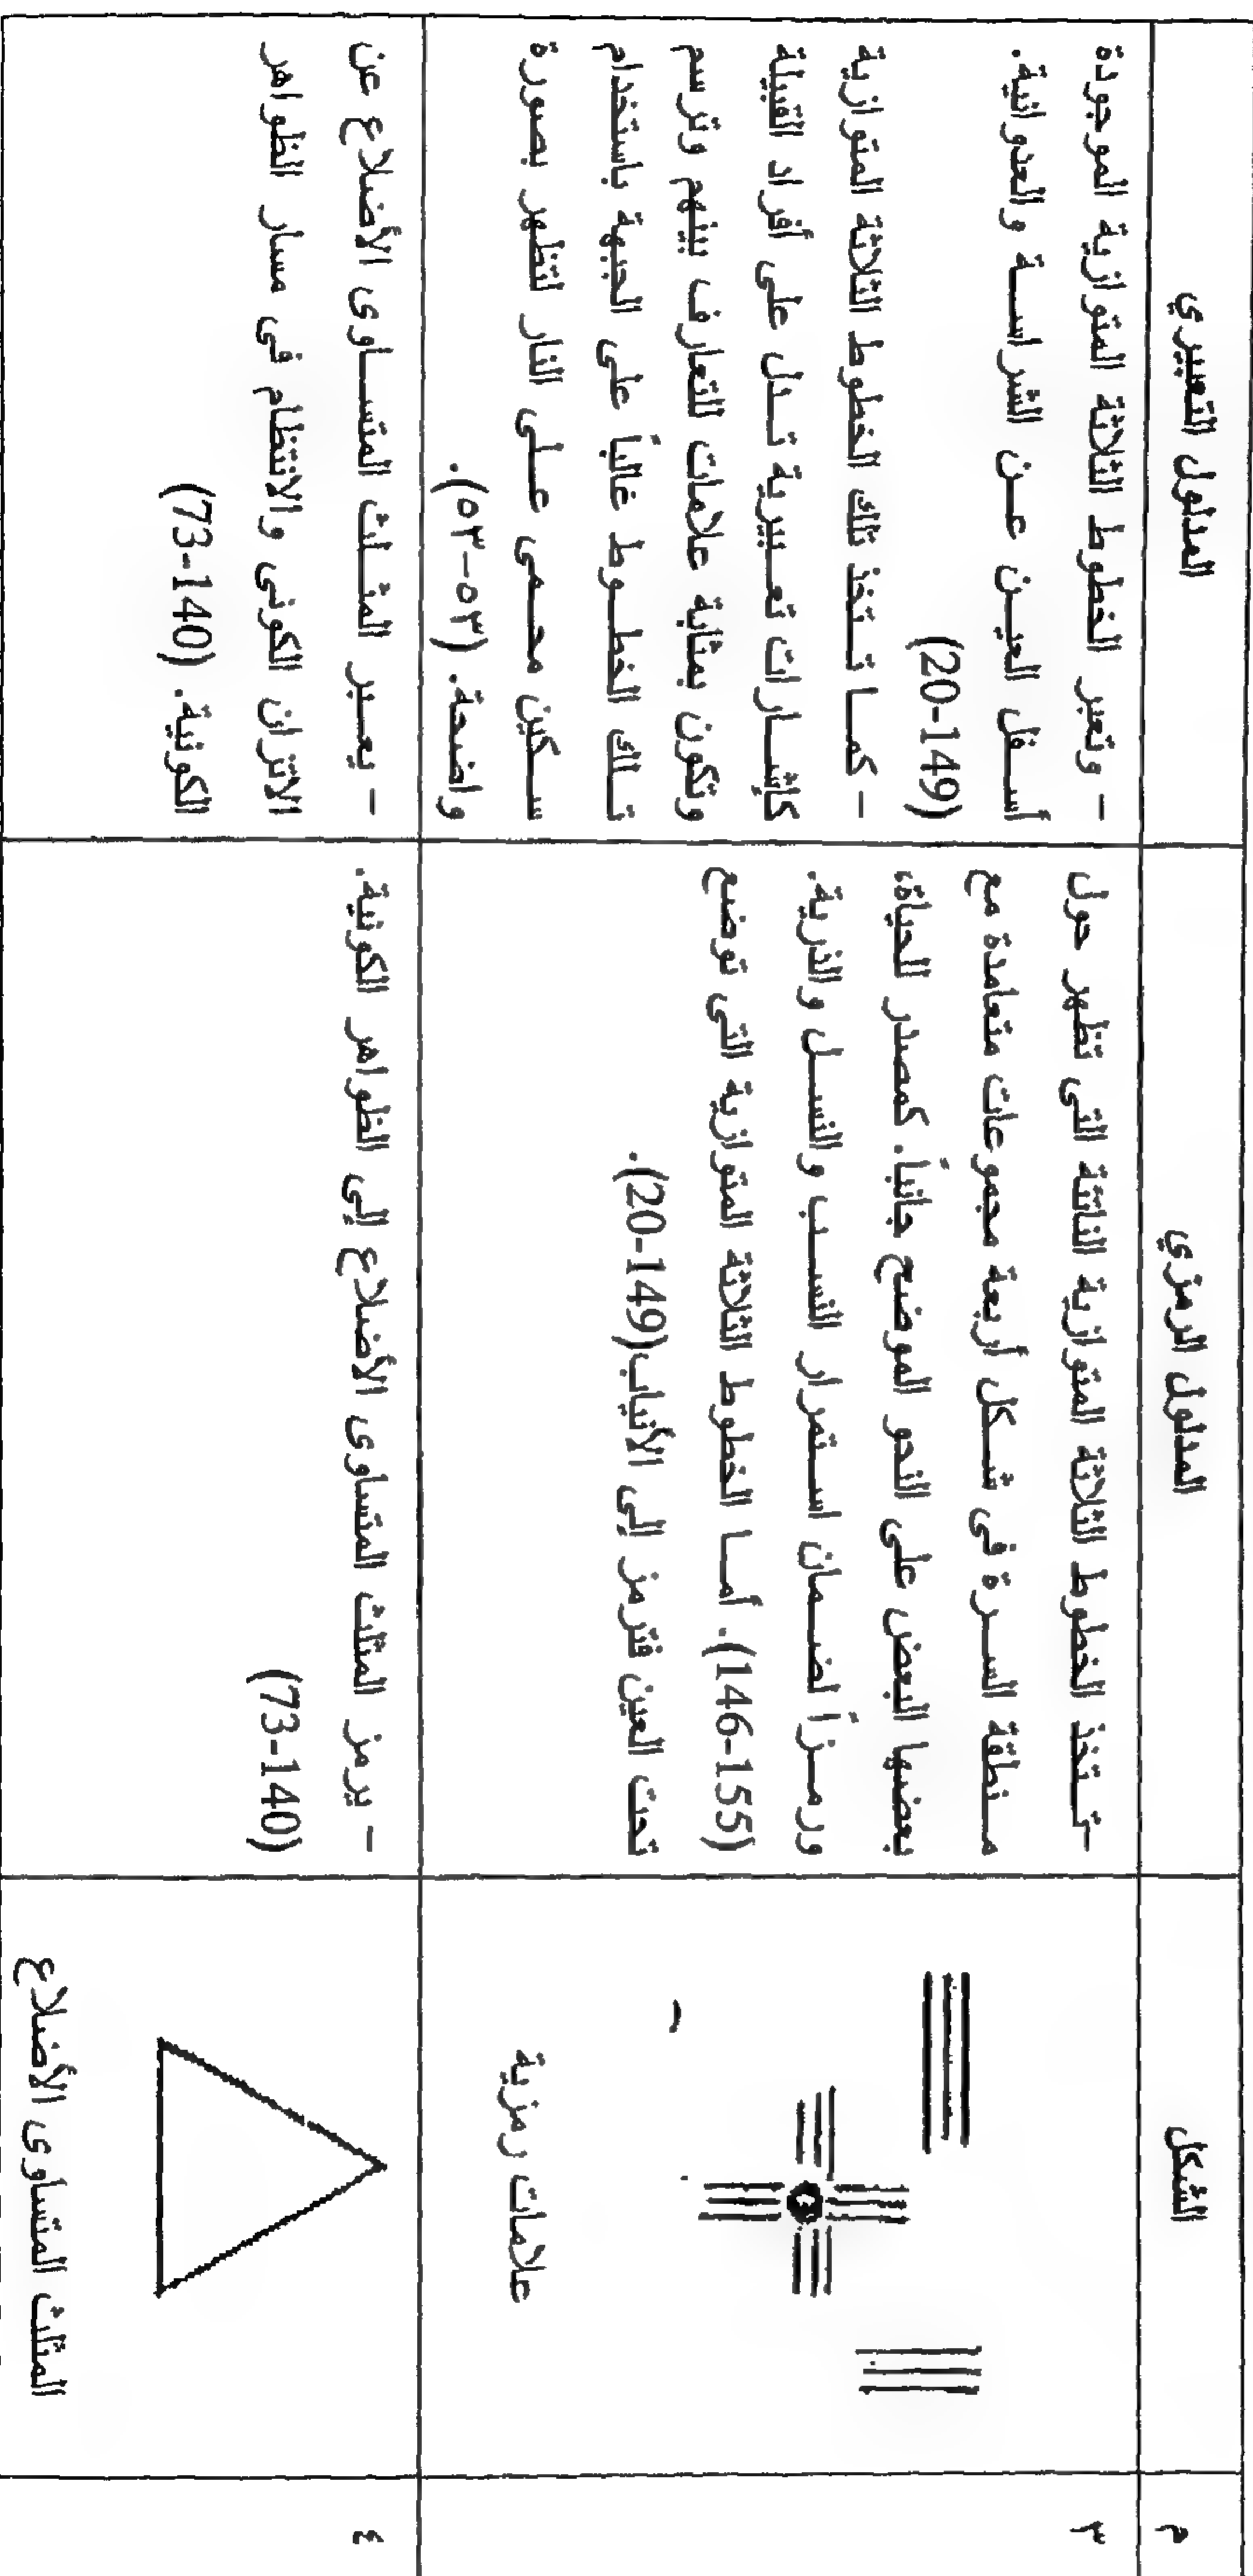 م
الشكل
المدلول الرمزي
المدلول التعبيري
٣
علامات رمزية
- تـتخذ الخطوط الثلاثة المتوازية الناتئة التى تظهر حول
مـنطقة السـرة فى شـكل أربعة مجموعات متعامدة مع
بعضها البعض على النحو الموضح جانباً. كمصدر للحياة،
ورمـزاً لضـمان اسـتمرار النسـب والنسـل والذرية.
(146-155). أمـا الخطوط الثلاثة المتوازية التى توضع
تحت العين فترمز إلى الأنياب(149-20).
- وتعبر الخطوط الثلاثة المتوازية الموجودة
أسـفل العيـن عـن الشراسـة والعدوانية.
(20-149)
- كمـا تـتخذ تلك الخطوط الثلاثة المتوازية
كإشـارات تعـبيرية تـدل على أفراد القبيلة
وتكون بمثابة علامات للتعارف بينهم وترسم
تـلك الخطـوط غالباً على الجبهة باستخدام
سـكين محـمى عـلى النار لتظهر بصورة
واضحة. (٥٣-٥٣).
٤
المثلث المتساوى الأضلاع
- يرمز المثلث المتساوى الأضلاع إلى الظواهر الكونية.
(73-140)
- يعـبر المثـلث المتسـاوى الأضلاع عن
الاتزان الكونى والانتظام فى مسار الظواهر
الكونية. (73-140)